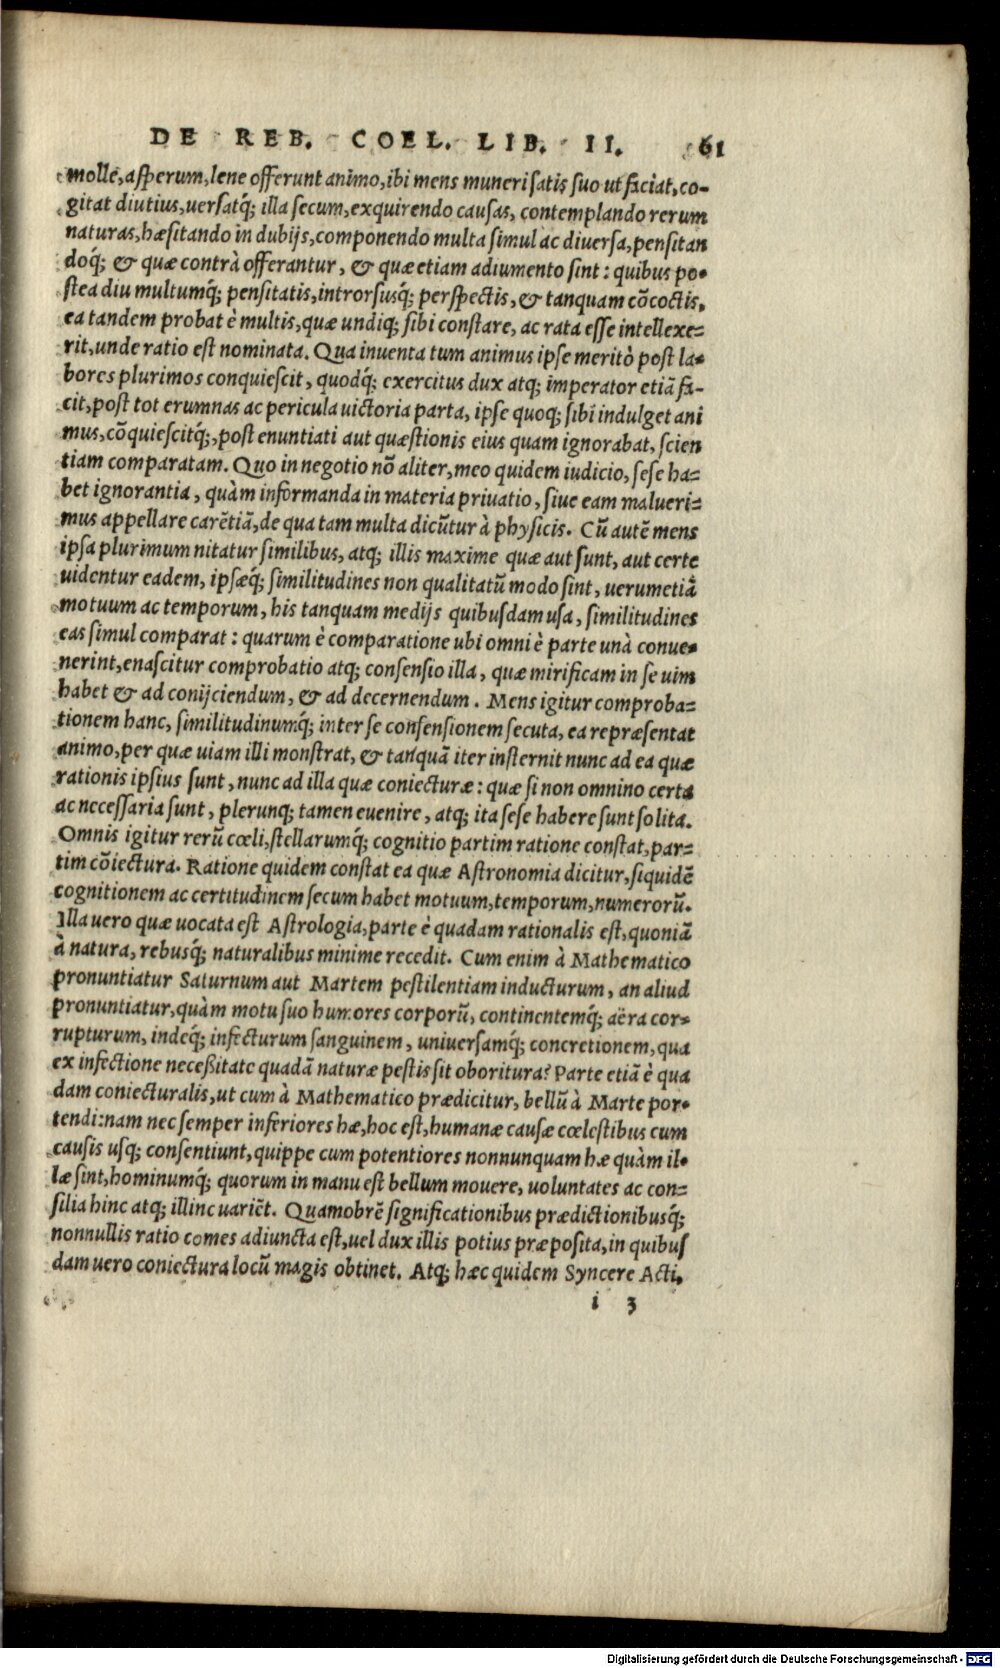 DE REB. COEL. LIB. II. 61
molle, asperum, lene offerunt animo, ibi mens muneri satis suo ut faciat, co-
gitat diutius, uersatq́; illa secum, exquirendo causas, contemplando rerum
naturas, hæsitando in dubijs, componendo multa simul ac diuersa, pensitan
doq́; & quæ contrà offerantur, & quæ etiam adiumento sint: quibus po-
stea diu multumq́; pensitatis, introrsusq́; perspectis, & tanquam cōcoctis,
ea tandem probat è multis, quæ undiq; sibi constare, ac rata esse intellexe-
rit, unde ratio est nominata. Qua inuenta tum animus ipse meritò post la-
bores plurimos conquiescit, quodq́; exercitus dux atq; imperator etiā fa-
cit, post tot erumnas ac pericula uictoria parta, ipse quoq; sibi indulget ani
mus, cōquiescitq́;, post enuntiati aut quæstionis eius quam ignorabat, scien
tiam comparatam. Quo in negotio nō aliter, meo quidem iudicio, sese ha-
bet ignorantia, quàm informanda in materia priuatio, siue eam malueri-
mus appellare carētiā, de qua tam multa dicūtur à physicis. Cū autē mens
ipsa plurimum nitatur similibus, atq; illis maxime quæ aut sunt, aut certe
uidentur eadem, ipsæq́; similitudines non qualitatū modo sint, uerumetiā
motuum ac temporum, his tanquam medijs quibusdam usa, similitudines
eas simul comparat: quarum è comparatione ubi omni è parte unà conue-
nerint, enascitur comprobatio atq; consensio illa, quæ mirificam in se uim
habet & ad conijciendum, & ad decernendum. Mens igitur comproba-
tionem hanc, similitudinumq́; inter se consensionem secuta, ea repræsentat
animo, per quæ uiam illi monstrat, & tanquā iter insternit nunc ad ea quæ
rationis ipsius sunt, nunc ad illa quæ coniecturæ: quæ si non omnino certa
ac necessaria sunt, plerunq; tamen euenire, atq; ita sese habere sunt solita.
Omnis igitur rerū cœli, stellarumq́; cognitio partim ratione constat, par-
tim cōiectura. Ratione quidem constat ea quæ Astronomia dicitur, siquidē
cognitionem ac certitudinem secum habet motuum, temporum, numerorū.
Illa uero quæ uocata est Astrologia, parte è quadam rationalis est, quoniā
à natura, rebusq́; naturalibus minime recedit. Cum enim à Mathematico
pronuntiatur Saturnum aut Martem pestilentiam inducturum, an aliud
pronuntiatur, quàm motu suo humores corporū, continentemq́; aëra cor-
rupturum, indeq́; infecturum sanguinem, uniuersamq́; concretionem, qua
ex infectione neceßitate quadā naturæ pestis sit oboritura? Parte etiā è qua
dam coniecturalis, ut cum à Mathematico prædicitur, bellū à Marte por-
tendi: nam nec semper inferiores hæ, hoc est, humanæ causæ cœlestibus cum
causis usq; consentiunt, quippe cum potentiores nonnunquam hæ quàm il-
læ sint, hominumq́; quorum in manu est bellum mouere, uoluntates ac con-
silia hinc atq; illinc uariēt. Quamobrē significationibus prædictionibusq́;
nonnullis ratio comes adiuncta est, uel dux illis potius præposita, in quibus
dam uero coniectura locū magis obtinet. Atq; hæc quidem Syncere Acti,
i 3
Digitalisierung gefördert durch die Deutsche Forschungsgemeinschaft - DFG